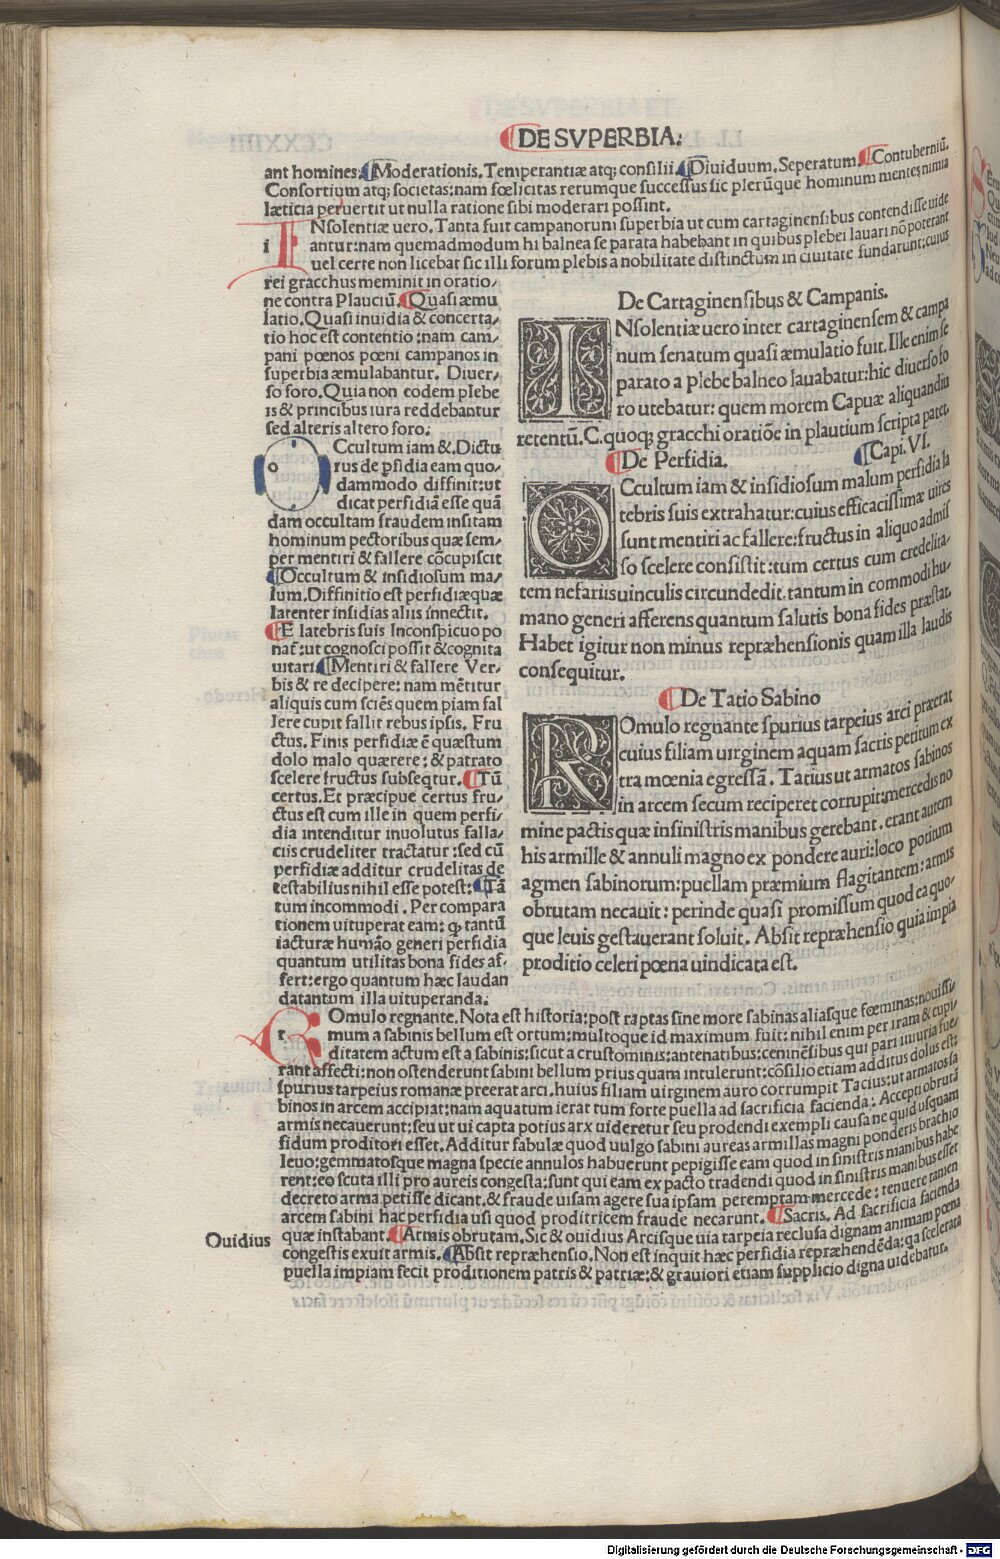 DE SVPERBIA:
ant homines: Moderationis. Temperantiæ atq; consilii. Diuiduum. Seperatum. Contuberniū.
Consortium atq; societas: nam fœlicitas rerumque successus sic plerūque hominum mentes nimia
læticia peruertit ut nulla ratione sibi moderari possint.
INsolentiæ uero. Tanta fuit campanorum superbia ut cum cartaginensibus contendisse uide
i antur: nam quemadmodum hi balnea se parata habebant in quibus plebei lauari nō poterant
uel certe non licebat sic illi forum plebis a nobilitate distinctum in ciuitate fundarunt: cuius
rei gracchus meminit in oratio/
ne contra Plauciū. Quasi æmu
latio. Quasi inuidia & concerta/
tio hoc est contentio: nam cam/
pani pœnos pœni campanos in
superbia æmulabantur. Diuer/
so foro. Quia non eodem plebe
is & princibus iura reddebantur
sed alteris altero foro:
o Ccultum iam &. Dictu
rus de pfidia eam quo/
dammodo diffinit: ut
dicat perfidiā esse quā
dam occultam fraudem insitam
hominum pectoribus quæ sem/
per mentiri & fallere cōcupiscit
Occultum & insidiosum ma/
lum. Diffinitio est perfidiæ quæ
latenter insidias aliis innectit.
E latebris suis Inconspicuo po
nat: ut cognosci possit & cognita
uitari Mentiri & fallere Ver/
bis & re decipere: nam mētitur
aliquis cum sciēs quem piam fal
lere cupit fallit rebus ipsis. Fru
ctus. Finis perfidiæ ē quæstum
dolo malo quærere: & patrato
scelere fructus subseqtur. Tū
certus. Et præcipue certus fru/
ctus est cum ille in quem perfi/
dia intenditur inuolutus falla/
ciis crudeliter tractatur: sed cū
perfidiæ additur crudelitas de
testabilius nihil esse potest: Tā
tum incommodi. Per compara
tionem uituperat eam: q; tantū
iacturæ humāo generi perfidia
quantum utilitas bona fides af/
fert: ergo quantum hæc laudan
da tantum illa uituperanda.
De Cartaginensibus & Campanis.
INsolentiæ uero inter cartaginensem & campa
num senatum quasi æmulatio fuit. Ille enim se
parato a plebe balneo lauabatur: hic diuerso fo
ro utebatur: quem morem Capuæ aliquandiu
retentū. C. quoq; gracchi oratiōe in plautium scripta patet.
De Perfidia. Capi. VI.
OCcultum iam & insidiosum malum perfidia la
tebris suis extrahatur: cuius efficacissimæ uires
sunt mentiri ac fallere: fructus in aliquo admis
so scelere consistit: tum certus cum credelita/
tem nefariis uinculis circundedit. tantum in commodi hu/
mano generi afferens quantum salutis bona fides præstat.
Habet igitur non minus repræhensionis quam illa laudis
consequitur.
De Tatio Sabino
ROmulo regnante spurius tarpeius arci præerat
cuius filiam uirginem aquam sacris petitum ex
tra mœnia egressā. Tatius ut armatos sabinos
in arcem secum reciperet corrupit: mercedis no
mine pactis quæ in sinistris manibus gerebant. erant autem
his armille & annuli magno ex pondere auri: loco potitum
agmen sabinorum: puellam præmium flagitantem: armis
obrutam necauit: perinde quasi promissum quod ea quo/
que leuis gestauerant soluit. Absit repræhensio quia impia
proditio celeri pœna uindicata est.
r Omulo regnante. Nota est historia: post raptas sine more sabinas aliasque fœminas: nouissi
mum a sabinis bellum est ortum: multoque id maximum fuit: nihil enim per iram & cupi
ditatem actum est a sabinis: sicut a crustominis: antenatibus: ceninēsibus qui pari iniuria fue
rant affecti: non ostenderunt sabini bellum prius quam intulerunt: cōsilio etiam additus dolus est:
spurius tarpeius romanæ preerat arci. huius filiam uirginem auro corrumpit Tacius: ut armatos sa
binos in arcem accipiat: nam aquatum ierat tum forte puella ad sacrificia facienda: Accepti obrutā
armis necauerunt: seu ut ui capta potius arx uideretur seu prodendi exempli causa ne quid usquam
fidum proditori esset. Additur fabulæ quod uulgo sabini aureas armillas magni ponderis brachio
leuo: gemmatosque magna specie annulos habuerunt pepigisse eam quod in sinistris manibus habe
rent: eo scuta illi pro aureis congesta: sunt qui eam ex pacto tradendi quod in sinistris manibus esset
decreto arma petisse dicant. & fraude uisam agere sua ipsam peremptam mercede: tenuere tamen
arcem sabini hac perfidia usi quod proditricem fraude necarunt. Sacris. Ad sacrificia facienda
quæ instabant. Armis obrutam. Sic & ouidius Arcisque uia tarpeia reclusa dignam animam pœna
Ouidius
congestis exuit armis. Absit repræhensio. Non est inquit hæc perfidia repræhendēda: qa scelerata
puella impiam fecit proditionem patris & patriæ: & grauiori etiam supplicio digna uidebatur.
Digitalisierung gefördert durch die Deutsche Forschungsgemeinschaft - DFG